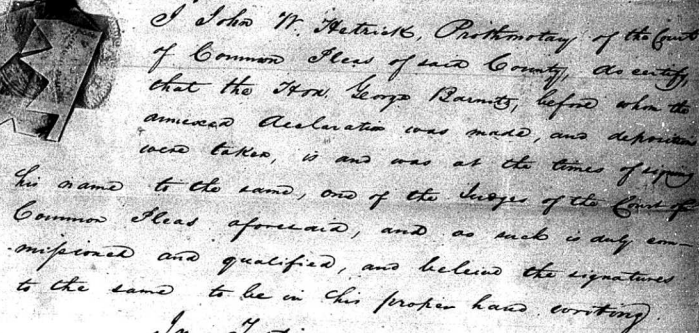 I John W. Hetrick, Prothonotary of the Court
of Common Pleas of said County, do certify,
that the Hon. George Barnitz, before whom the
annexed declaration was made, and depositions
were taken, is and was at the times of signing
his name to the same, one of the Judges of the Court of
Common Pleas aforesaid, and as such is duly com-
missioned and qualified, and beleive the signatures
to the same to be in his proper hand writing.
In